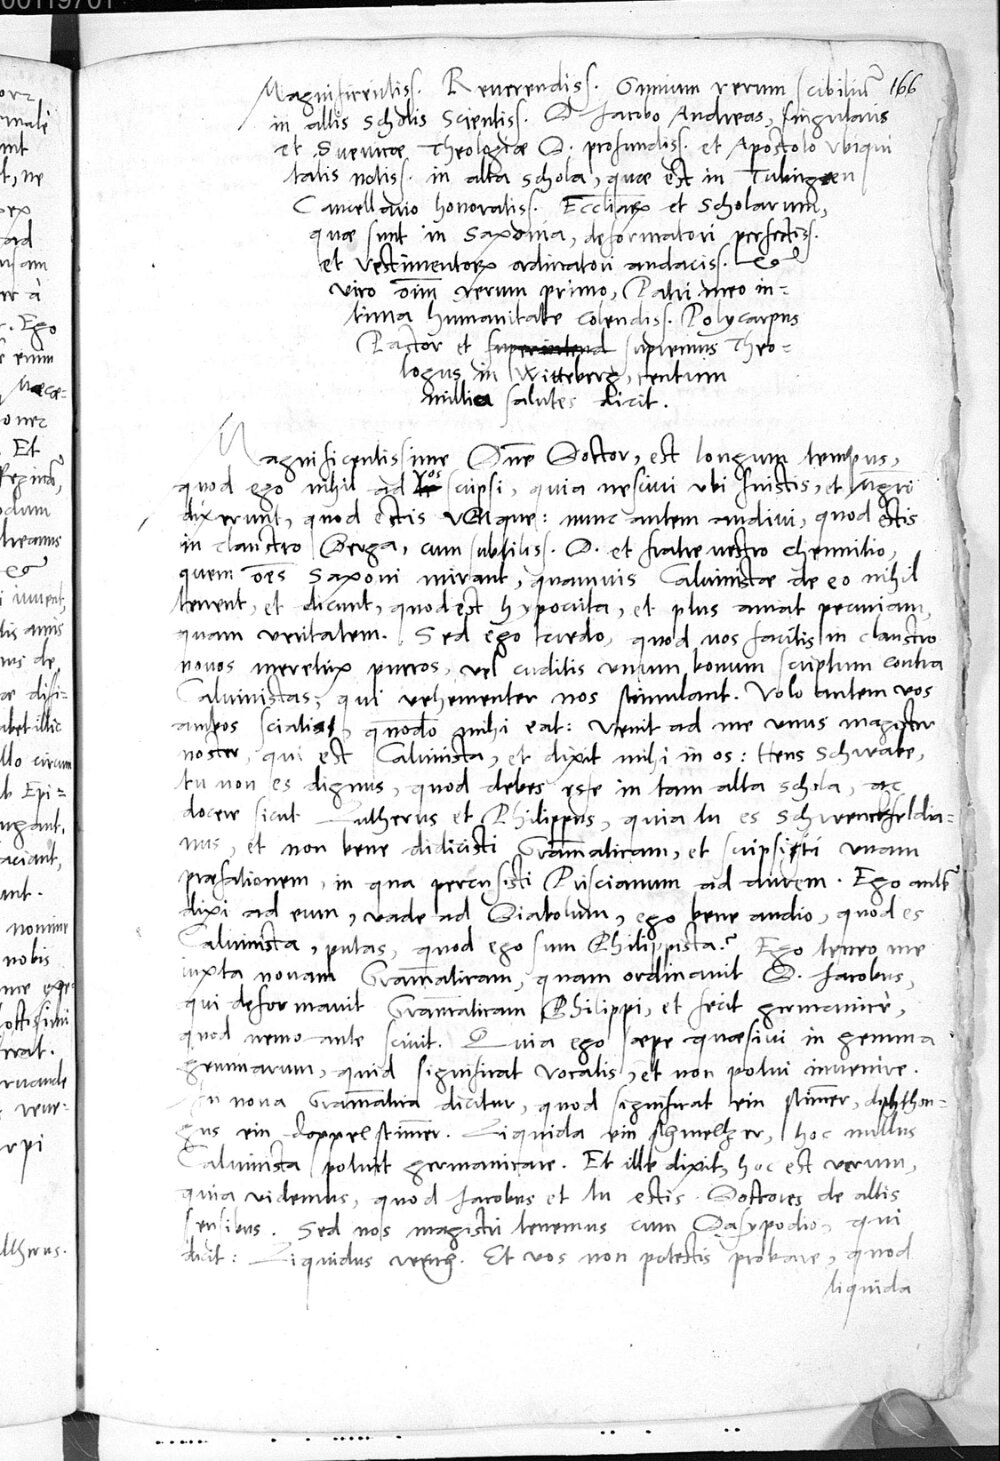 Magnificentiss. Reverendiss. Omnium rerum scibiliũ 166
in altis scholis scientiss. D. Jacobo Andreae, singularis
et Suevicae Theologiae D. profundiss. et Apostolo Ubiqui
tatis notiss. in alta schola, quae est in Tubingen
Cancellario honoratiss. Eccliarꝝ et scholarum,
quae sunt in Saxonia, deformatori perfectiss.
et vestimentorꝝ
viro oim̃ rerum primo, Patri meo in-
tima humanitate colendiss. Polycarpus
Pastor et superintend supremus Theo-
logus in Witteberg, centum
millia salutes dicit.
Magnificentissime Dñe Doctor, est longum tempus,
quod ego nihil ad vos scripsi, quia nescivi ubi fuistis, et
dixerunt, quod estis ubique: nunc autem audivi, quod estis
in claustro Berga, cum subtiliss. D. et fratre vestro chemnitio,
quem oẽs Saxoni mirant, quamvis Calvinistae de eo nihil
tenent, et dicunt, quod est hypocrita, et plus amat pecuniam,
quam veritatem. Sed ego credo, quod vos facitis in claustro
novos pueros, vel cuditis unum bonum scriptum contra
Calvinistas, qui vehementer nos stimulant. Volo autem vos
ambos sciatis, quõdo mihi eat: Venit ad me unus magister
noster, qui est Calvinista, et dixit mihi in os: Hens Schwabe,
tu non es dignus, quod debes esse in tam alta schola, ac
docere sicut Lutherus et Philippus, quia tu es Schwenckfeldia-
nus, et non bene didicisti Gram̃aticam, et scripsisti unam
praefationem, in qua percussisti Priscianum ad aurem. Ego autẽ
dixi ad eum, vade ad Diabolum, ego bene audio, quod es
Calvinista, putas, quod ego sum Philippista? Ego teneo me
iuxta novam Gram̃aticam, quam ordinavit D. Jacobus,
qui deformavit Gram̃aticam Philippi, et fecit germanicè,
quod nemo ante scivit. Quia ego saepe quaesivi in gemma
gemmarum, quid significat vocalis, et non potui invenire.
In nova Gram̃atica dicitur, quod significat ein stim̃er, diphthon-
gus ein doppelstim̃er. Liquida ein schmeltzer, hoc nullus
Calvinista potuit germanicare. Et ille dixit, hoc est verum,
quia videmus, quod Jacobus et tu estis Doctores de altis
sensibus. Sed nos magistri tenemus cum Dasypodio, qui
dicit: Liquidus Et vos non potestis probare, quod
liquida